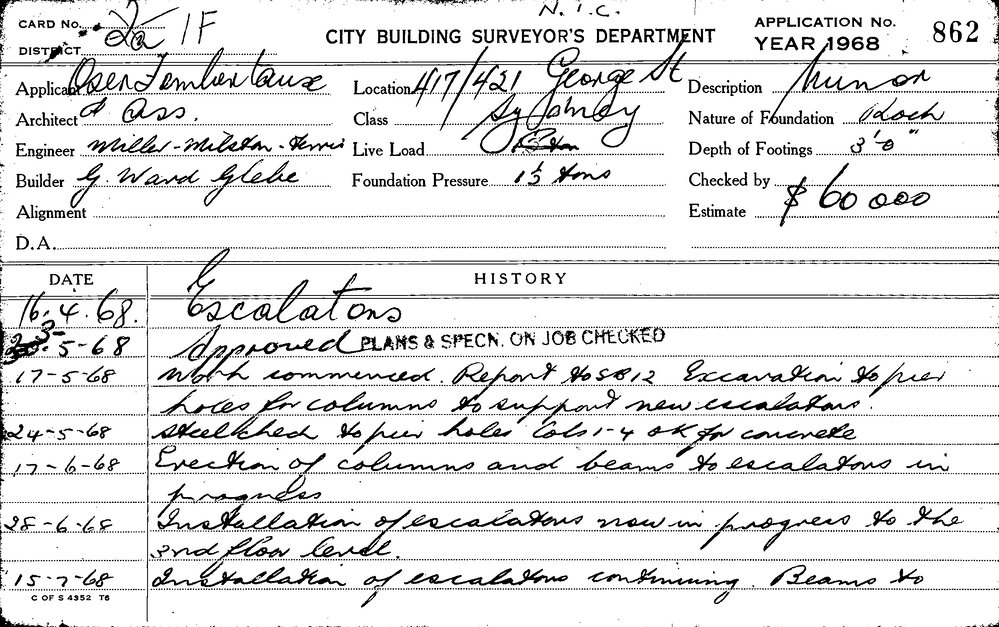 N.I.C.
CARD No. 2a 1F
DISTRICT
CITY BUILDING SURVEYOR'S DEPARTMENT
APPLICATION No. 862
YEAR 1968
Applicant
Architect & Ass.
Engineer Miller-Milston-Ferris
Builder G. Ward Glebe
Alignment
D.A.
Location 417/421 George St
Class Sydney
Live Load
Foundation Pressure 1½ tons
Description Minor
Nature of Foundation Rock
Depth of Footings 3'-0"
Checked by
Estimate $60 000
DATE HISTORY
16.4.68. Escalators
3-5-68 Approved PLANS & SPECN. ON JOB CHECKED
17-5-68 Work commenced. Report to SB12 Excavation to pier
holes for columns to support new escalators.
24-5-68 Steel ched to pier holes Cols 1-4 OK for concrete
17-6-68 Erection of columns and beams to escalators in
progress
28-6-68 Installation of escalators now in progress to the
2nd floor level.
15-7-68 Installation of escalators continuing. Beams to
C OF S 4352 T6